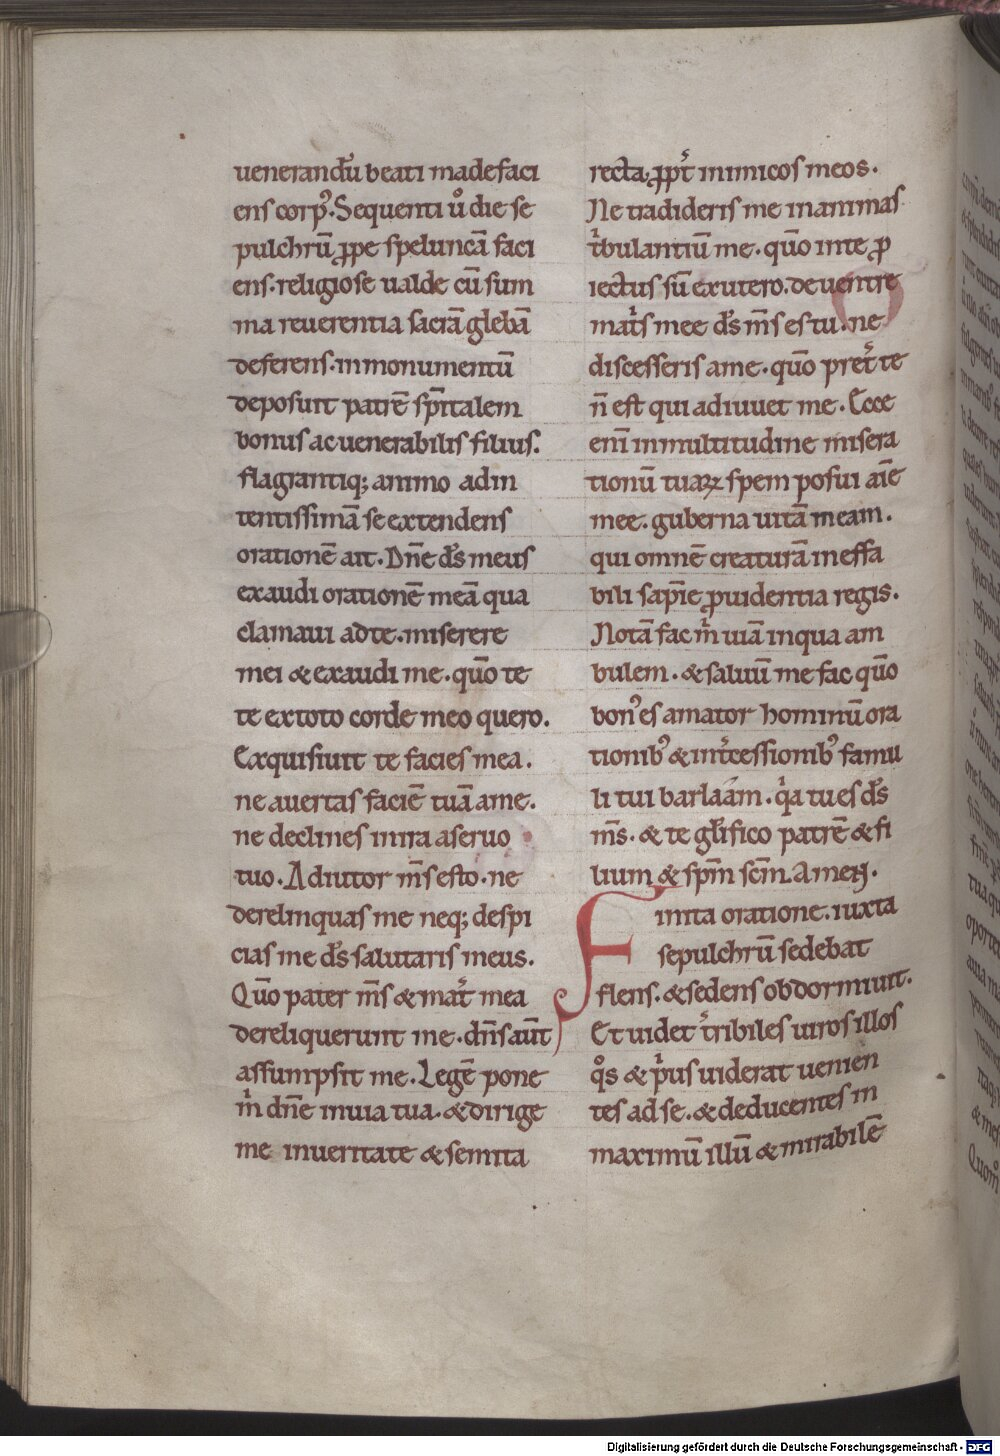 uenerandũ beati madefaci
ens corpꝰ. Sequenti u̾o die se
pulchrũ ꝓpe speluncã faci
ens. religiose ualde cũ sum
ma reuerentia sacrã glebã
deferens. in monumentũ
deposuit patrẽ sp̃italem
bonus ac uenerabilis filius.
flagrantiq; animo ad in
tentissimã se extendens
orationẽ ait. Dñe d̃s meus
exaudi orationẽ meã qua
clamaui ad te. miserere
mei & exaudi me. quõ te
te ex toto corde meo quero.
Exquisiuit te facies mea.
ne auertas faciẽ tuã a me.
ne declines in ira a seruo
tuo. Adiutor m̃s esto. ne
derelinquas me neq; despi
cias me d̃s salutaris meus.
Quõ pater m̃s & mat̃ mea
dereliquerunt me. dñs aũt
assumpsit me. Legẽ pone
m̃ dñe in uia tua. & dirige
me in ueritate & semita
recta ꝓpt̃ inimicos meos.
Ne tradideris me in animas
t̃bulantiũ me. quõ in te ꝓ
iectus sũ ex utero. de uentre
mat̃s mee d̃s m̃s es tu. ne
discesseris a me. quõ pret̃ te
ñ est qui adiuuet me. Ecce
enĩ in multitudine misera
tionũ tuaꝝ spem posui aĩe
mee. guberna uitã meam.
qui omnẽ creaturã ineffa
bili sapĩe ꝓuidentia regis.
Notã fac m̃ uiã in qua am
bulem. & saluũ me fac quõ
bonꝰ es amator hominũ ora
tionibꝰ & int̃cessionibꝰ famu
li tui barlaam. q̃a tu es d̃s
m̃s. & te gl̃ifico patrẽ & fi
lium & sp̃m sc̃m. Amen.
Finita oratione. iuxta
sepulchrũ sedebat
flens. & sedens obdormiuit.
Et uidet t̃ribiles uiros illos
q̊s & p̃us uiderat uenien
tes ad se. & deducentes in
maximũ illũ & mirabilẽ
Digitalisierung gefördert durch die Deutsche Forschungsgemeinschaft - DFG